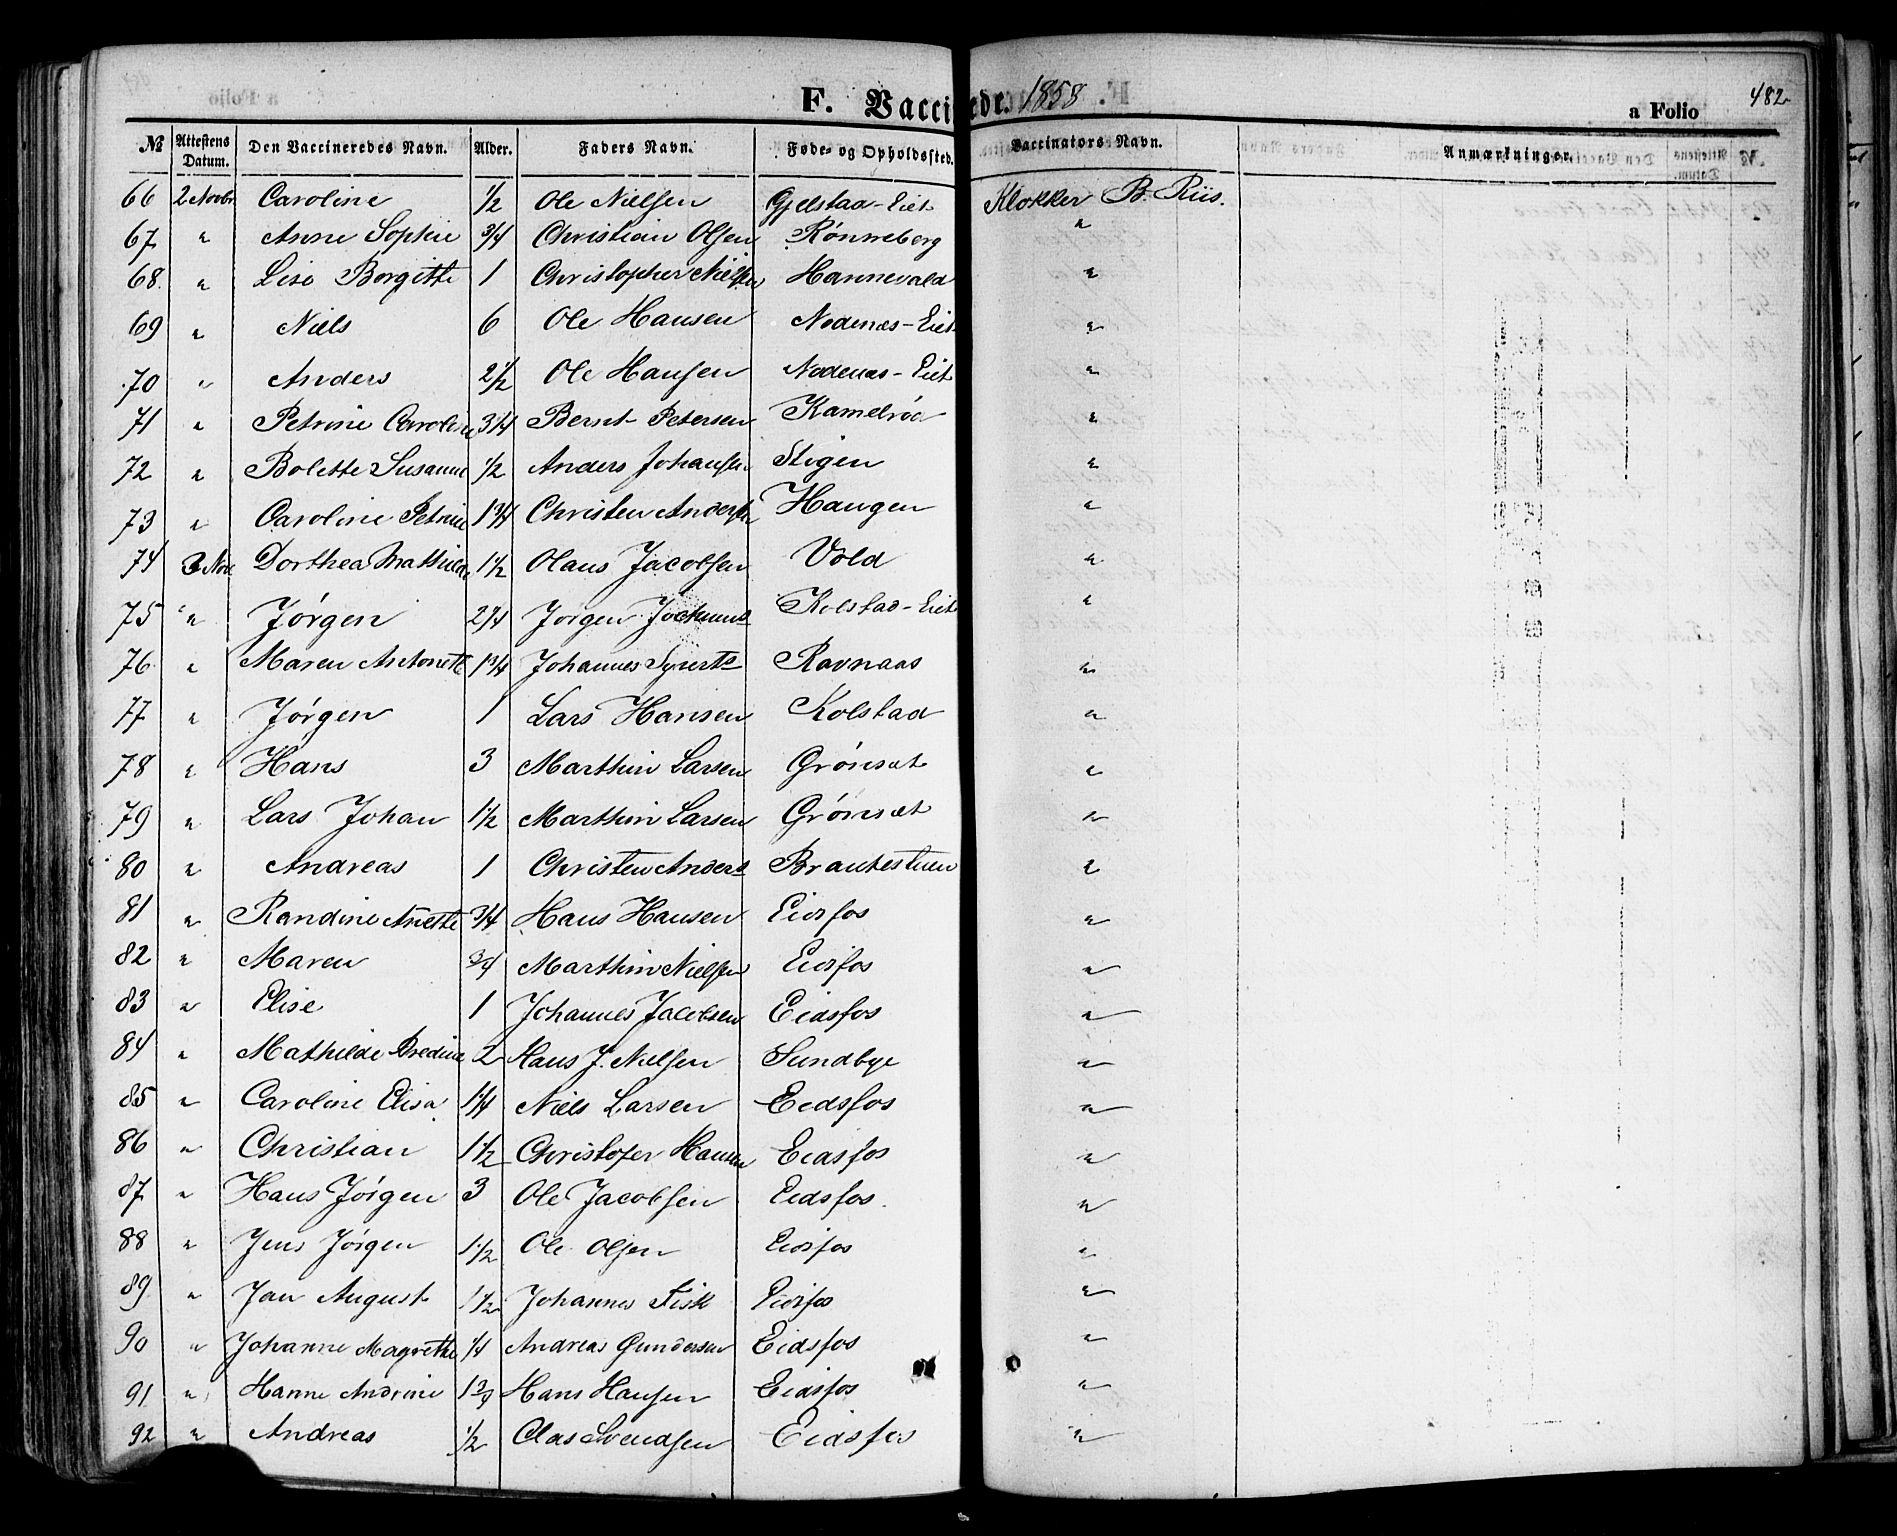 F. Vaccinerede. 1858 a Folio 482
№ Attestens Datum. Den Vaccineredes Navn. Alder. Faders Navn. Føde- og Opholdssted. Vaccinators Navn. Anmærkninger.
66 2 Novbr Caroline 1/2 Ole Nielsen Gjelstad-Eiet Klokker B. Riis.
67 " Anne Sophie 3/4 Christian Olsen Rønneberg "
68. " Lise Borgitte 1 Christopher Nielsen Hannevald "
69 " Niels 6 Ole Hansen Nodenæs-Eiet "
70 " Anders 2 1/2 Ole Hansen Nodenæs-Eiet "
71 " Petrine Caroline 3/4 Bernt Petersen Kamelrød "
72 " Bolette Susanne 1/2 Anders Johansen Stigen "
73 " Caroline Petrine 1 3/4 Christen Andersen Haugen "
74 3 Nov Dorthea Mathilde 1 1/2 Olaus Jacobsen Vold "
75 " Jørgen 2 1/4 Jørgen Jochums Kolstad-Eiet "
76 " Maren Antonette 1 3/4 Johannes Syverts Ravnaas "
77 " Jørgen 1 Lars Hansen Kolstad "
78 " Hans 3 Marthin Larsen Grønsæt "
79 " Lars Johan 1 1/2 Marthin Larsen Grønsæt "
80 " Andreas 1 Christen Anders Brautestuen "
81 " Randine Anette 3/4 Hans Hansen Eidsfos "
82 " Maren 3/4 Marthin Nielsen Eidsfos "
83 " Elise 1 Johannes Jacobsen Eidsfos "
84 " Mathilde 2 Hans J. Nielsen Sundbye "
85 " Caroline Elisa 1 1/4 Niels Larsen Eidsfos "
86 " Christian 1 1/2 Christofer Hansen Eidsfos "
87 " Hans Jørgen 3 Ole Jacobsen Eidsfos. "
88 " Jens Jørgen 1 1/2 Ole Olsen Eidsfos "
89 " Jan August 1 1/2 Johannes Fisk Eidsfos "
90 " Johanne Magrethe 1/4 Andreas Gundersen Eidsfos "
91 " Hanne Andrine 1 3/4 Hans Hansen Eidsfos "
92 " Andreas 1/2 Clas Svendsen Eidsfos "